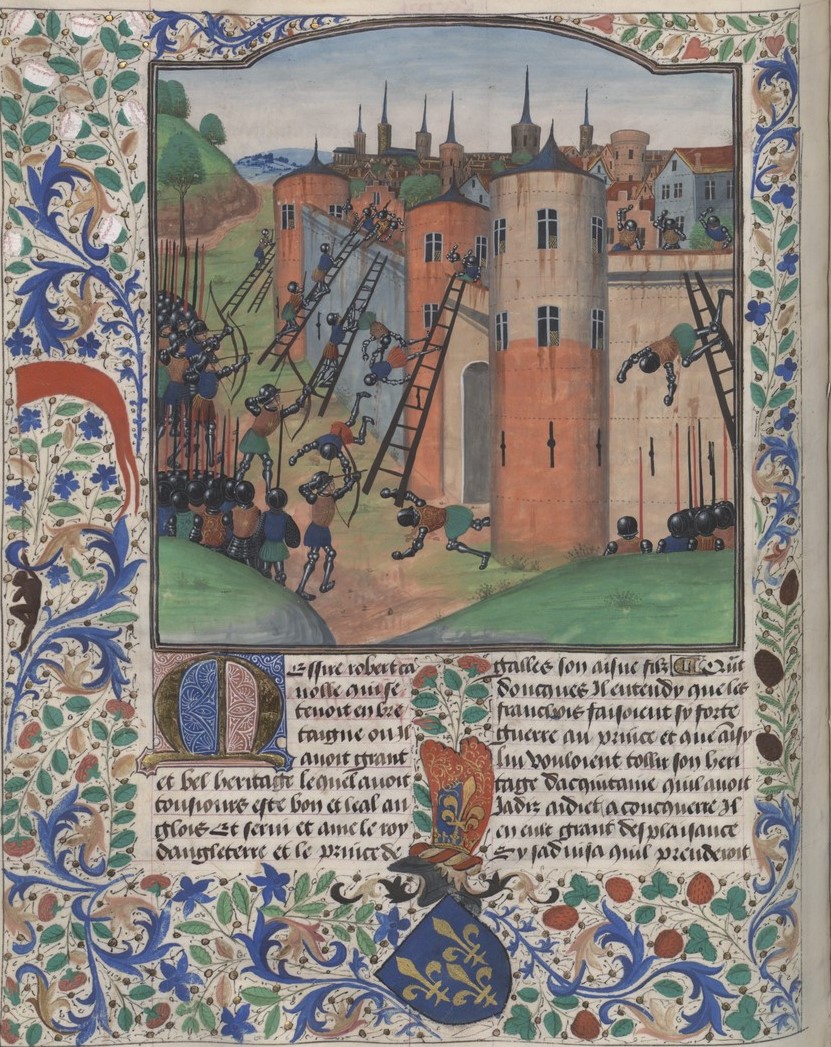 Messire robert ca
nolle qui se
tenoit en bre
taigne ou il
avoit grant
et bel heritage lequel avoit
tousiours este bon et leal an
glois Et servi et ame le roy
dangleterre et le prince de
galles son aisne filz Quant
doncques Il entendy que les
franchois faisoient sy forte
guerre au prince et que aisy
lui vouloient tollir son heri
tage dacquitaine quil avoit
Jadiz aidiet a concquerre Il
en eut grant desplaisance
Sy sadvisa quil prenderoit